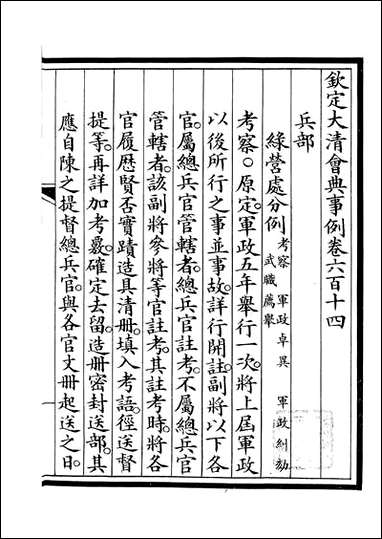 欽定大清會典事例卷六百十四
兵部
綠營處分例 考察 軍政卓異 軍政糾劾 武職薦舉
考察○原定。軍政五年舉行一次。將上屆軍政
以後所行之事並事故。詳行開註。副將以下各
官。屬總兵官管轄者。總兵官註考。不屬總兵官
管轄者。該副將參將等官註考。其註考時。將各
官履歷賢否實蹟造具清冊。填入考語。徑送督
提等。再詳加考覈。確定去留。造冊密封送部。其
應自陳之提督總兵官。與各官文冊起送之日。